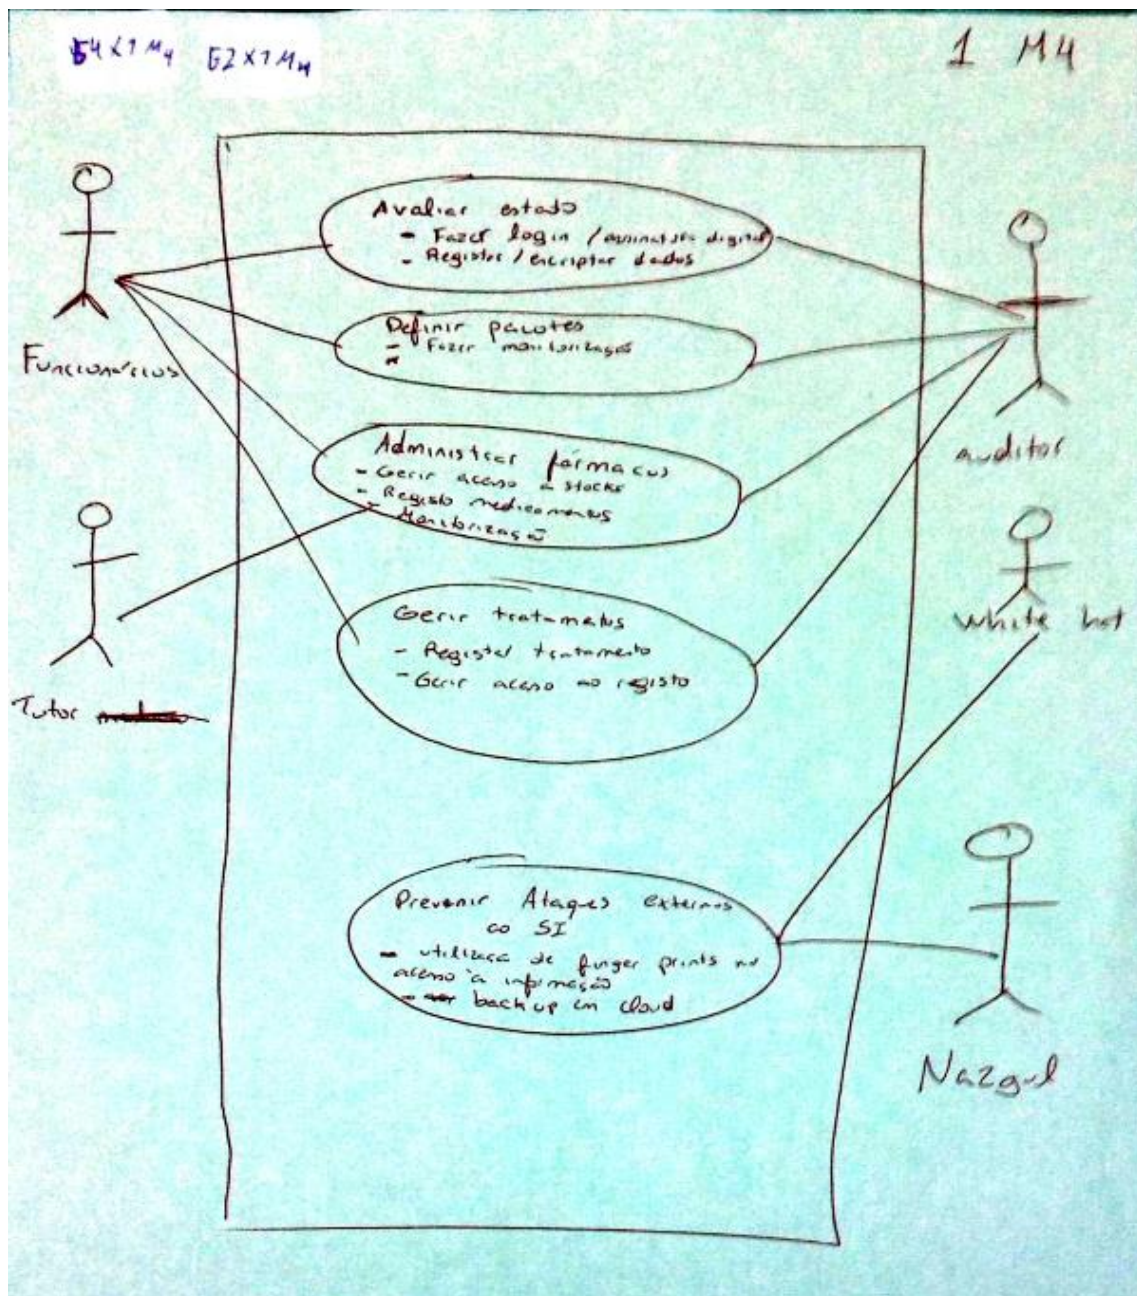 G4X1M4 G2X1M4
1 M4
Avaliar estado
- Fazer login / assinatura digital
- Registar / encriptar dados
Definir pacotes
- Fazer monitorização
-
Funcionários
Administrar fármacos
- Gerir acesso a stocks
- Registo medicamentos
- Monitorização
auditor
white hat
Gerir tratamentos
- Registar tratamento
- Gerir acesso ao registo
Tutor
Prevenir Ataques externos
ao SI
- utilizaçã de finger prints no
acesso à informação
- backup em cloud
Nazgul